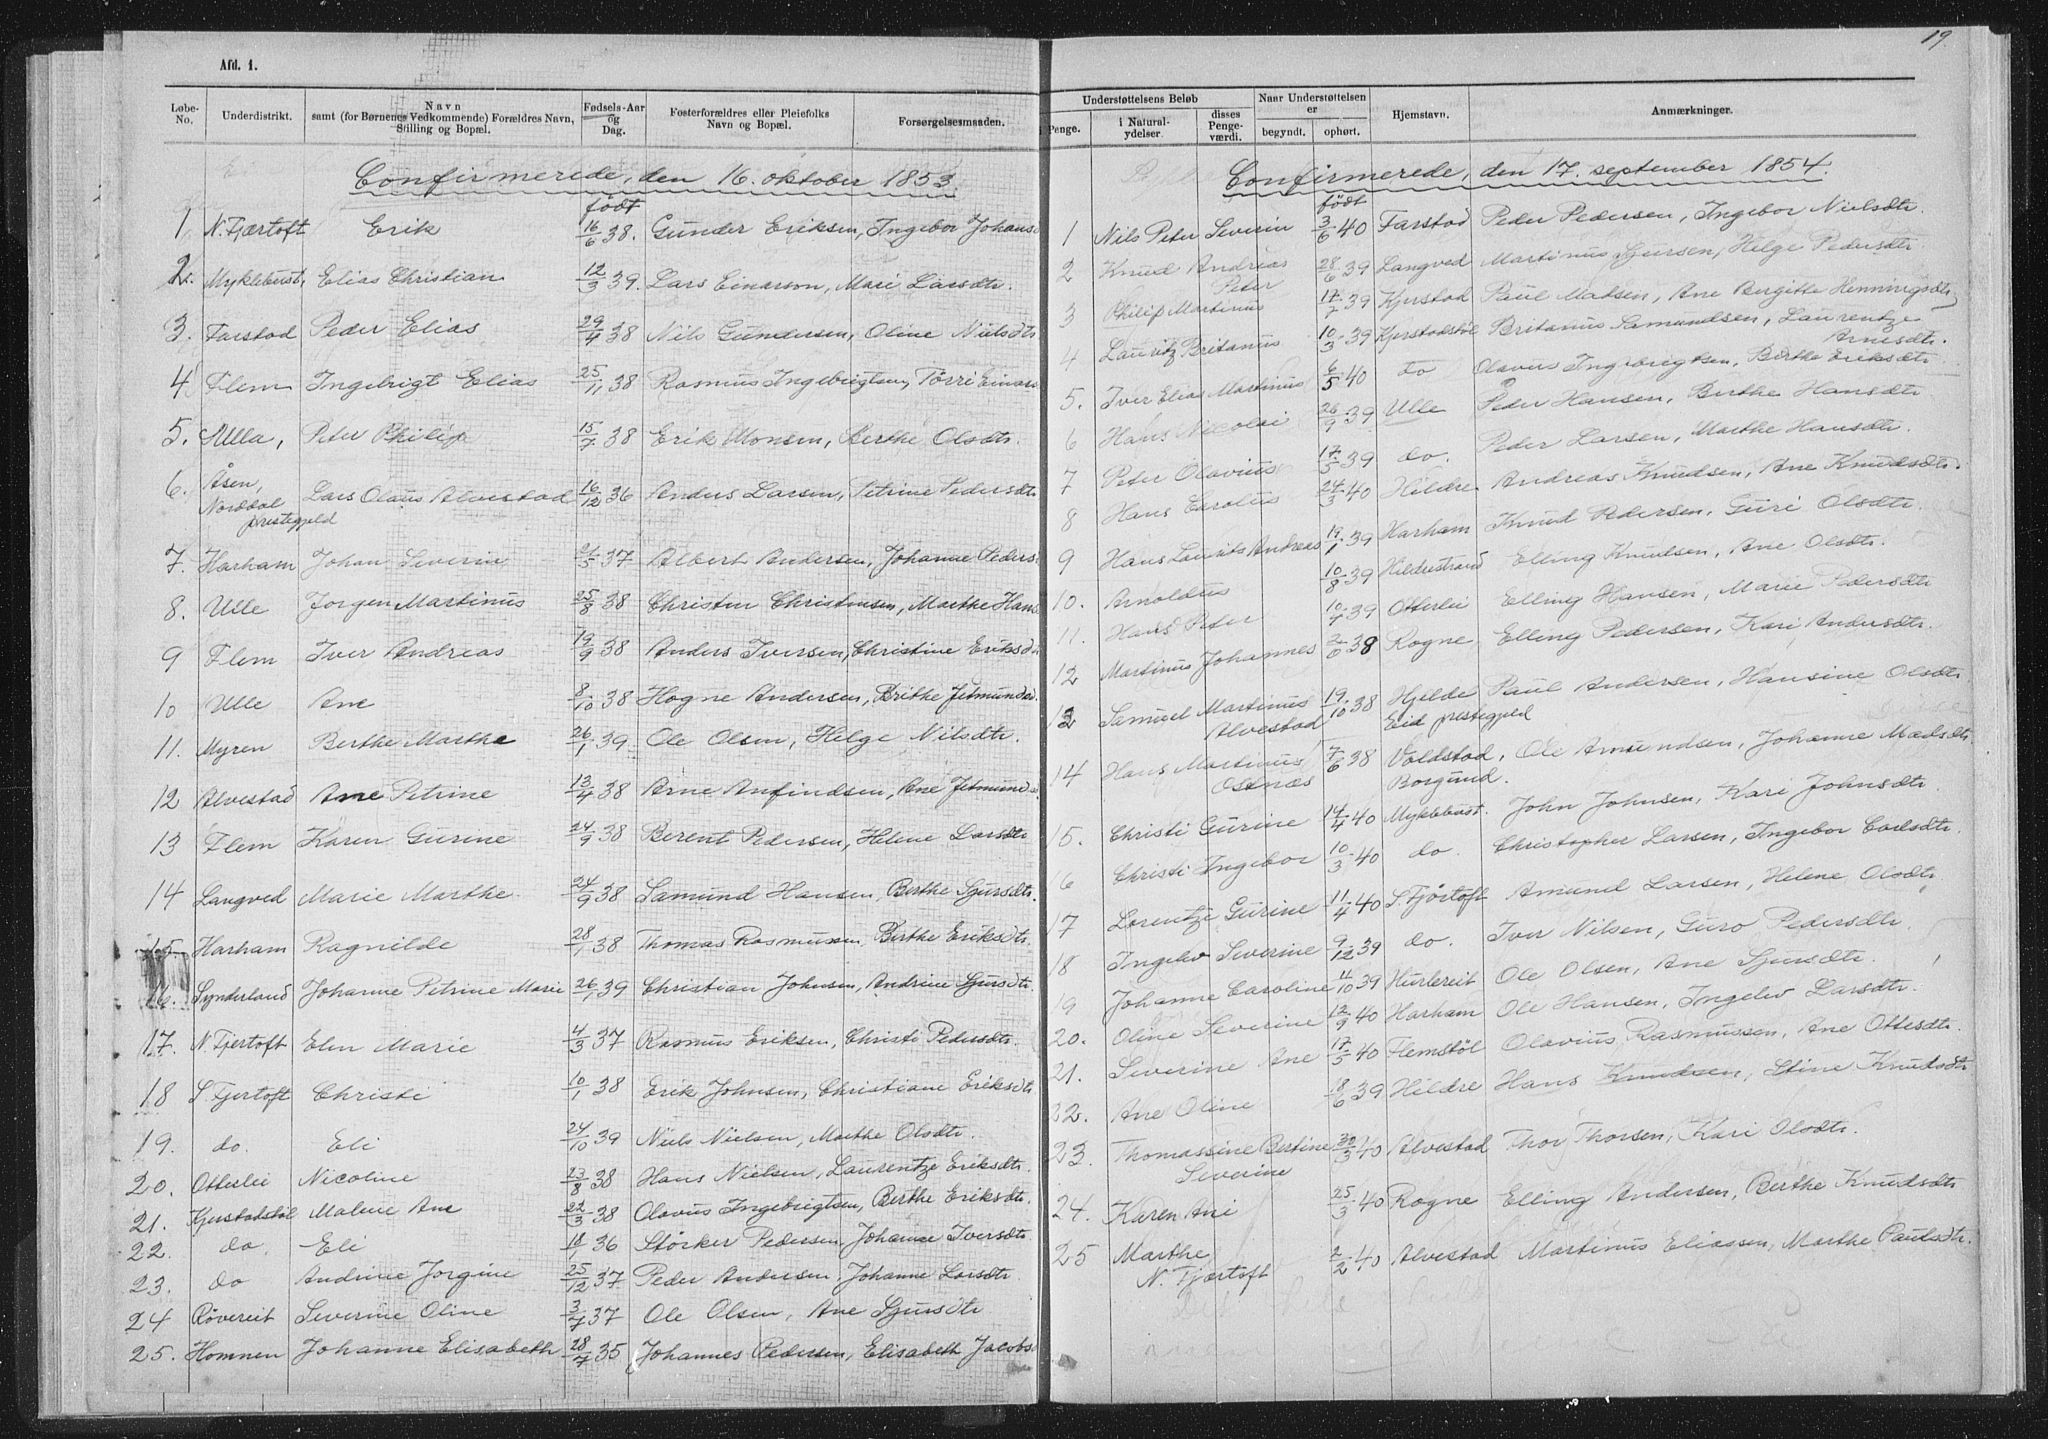 Afd. 1.
Løbe-No. Underdistrikt. Navn samt (for Børnenes Vedkommende) Forældres Navn, Stilling og Bopæl. Fødsels-Aar og Dag. Fosterforældres eller Pleiefolks Navn og Bopæl. Forsørgelsesmaaden.
Confirmerede, den 16. oktober 1853.
født
1 N. Fjærtoft Erik 16/6 38. Gunder Eriksen, Ingebor Johans
2. Myklebust, Elias Christian 12/3 39. Lars Einarson, Mari Larsdtr.
3. Farstad Peder Elias 29/4 38 Nils Gundersen, Oline Nielsdtr
4 Flem Ingebrigt Elias 25/1 38 Rasmus Ingebrigtsen, Törri Einars
5. Ulla, Peter Philip 15/7 38 Erik Monsen, Berthe Olsdtr.
6. Åsen, Norddal prestegjeld Lars Olaus Alvestad 16/12 36 Anders Larsen, Petrine Pedersdtr
7. Harham Johan Severin 21/5 37 Albert Andersen, Johanne Peders
8. Ulle Jorgen Martinus 25/8 38 Christen Christensen, Marthe Hans
9 Flem Iver Andreas 19/9 38 Anders Iversen, Christine Eriksd
10 Ulle Ane 8/10 38 Hogne Andersen, Brithe Jetmundsd
11. Myren Berthe Marthe 26/1 39 Ole Olsen, Helge Nilsdtr.
12 Alvestad Ane Petrine 13/4 38 Arne Anfindsen, Ane Jetmunds
13 Flem Karen Gurine 24/9 38 Berent Pedersen, Helene Larsdtr
14 Langved Marie Marthe. 24/9 38 Samund Hansen, Berthe Sjursdtr.
15 Harham Ragnilde 28/1 38 Thomas Rasmussen, Berthe Eriksdtr.
16. Synderland Johanne Petrine Marie 26/1 39 Christian Johnsen, Andrine Sjursdtr.
17. N. Fjertoft Elen Marie 4/3 37 Rasmus Eriksen, Christi Pedersdtr.
18 S. Fjertoft Christi 10/1 38 Erik Johnsen, Christiane Eriksdtr
19. do. Eli 24/10 39 Niels Nielsen, Marthe Olsdtr.
20. Otterlei Nicoline 23/8 38 Hans Nielsen, Laurentze Eriksdtr.
21. Kjerstadstöl Malene Ane 22/3 38 Olavus Ingebrigtsen, Berthe Eriksdtr.
22. do. Eli 18/1 36 Störker Pedersen, Johanne Iversdtr
23. do Andrine Jorgine 25/12 37 Peder Andersen, Johanne Larsdtr.
24 Rövereit Severine Oline 3/7 37 Ole Olsen, Ane Sjursdtr
25. Homnen Johanne Elisabeth 28/7 35 Johannes Pedersen, Elisabeth Jacobs
19.
Penge. Understøttelsens Beløb i Natural-ydelser. disses Penge-værdi. Naar Understøttelsen er begyndt. ophørt. Hjemstavn. Anmærkninger.
Confirmerede, den 17. september 1854.
født
1 Nils Peter Severin 3/6 40 Farstad Peder Pedersen, Ingebor Nielsdtr.
2 Knud Andreas Peter 28/6 39 Langved Martinus Sjursen, Helge Pedersdtr.
3 Philip Martinus 17/7 39 Kjerstad Paul Madsen, Ane Bergitte Henningsdtr
4 Lauritz Britanus 10/3 39 Kjerstadstöl Britanus Samundsen, Laurentze Arnesdtr.
5. Iver Elias Martinus 6/5 40 do Olavus Ingebrigtsen, Berthe Eriksdtr.
6 Hans Nicolai 26/9 39 Ulle Peder Hansen, Berthe Hansdtr
7 Peter Olavius 17/5 39 do. Peder Larsen, Marthe Hansdtr.
8 Hans Carolus 24/3 40 Hildre Andreas Knudsen, Ane Knudsdtr.
9 Hans Laurits Andreas 19/1 39 Harham Knud Pedersen, Guri Olsdtr.
10. Arnoldus 10/8 39 Hildrestrand Elling Knudsen, Ane Olsdtr.
11. Hans Peter 10/4 39 Otterlei Elling Hansen, Marie Pedersdtr
12 Martinus Johannes 2/0 38 Rogne Elling Pedersen, Kari Andersdtr.
13 Samuel Martinus Alvestad 19/10 38 Hjelde Eid prestegjeld Paul Andersen, Hansine Olsdtr
14 Hans Martinus Ostnæs 7/6 38 Valdstad, Borgund. Ole Amundsen, Johanne Madsdtr
15. Christi Gurine 14/4 40 Myklebust. John Johnsen, Kari Johnsdtr.
16 Christi Ingebor 10/3 40 do. Christopher Larsen, Ingebor Carlsdtr.
17 Lorentze Gurine 11/4 40 S. Fjörtoft Amund Larsen, Helene Olsdtr.
18 Ingelev Severine 9/12 39 do. Iver Nilsen, Guro Pedersdtr.
19 Johanne Caroline 11/10 39 Huslereit Ole Olsen, Ane Sjursdtr.
20. Oline Severine 12/9 40 Harham Ole Hansen, Ingelev Larsdtr.
21. Severine Ane 17/5 40 Flemstöl Olavius Rasmussen, Ane Ottesdtr.
22. Ane Oline 18/6 39 Hildre Hans Knudsen, Stine Knudsdtr
23. Thomassine Bertine Severine 30/3 40 Alvestad Thor Thorsen, Kari Olsdtr.
24. Karen Ane 25/3 40 Rogne Elling Andersen, Berthe Knudsdtr
25 Marthe N. Fjærtoft 2/2 40 Alvestad Martinus Eliassen, Marthe Paulsdtr.